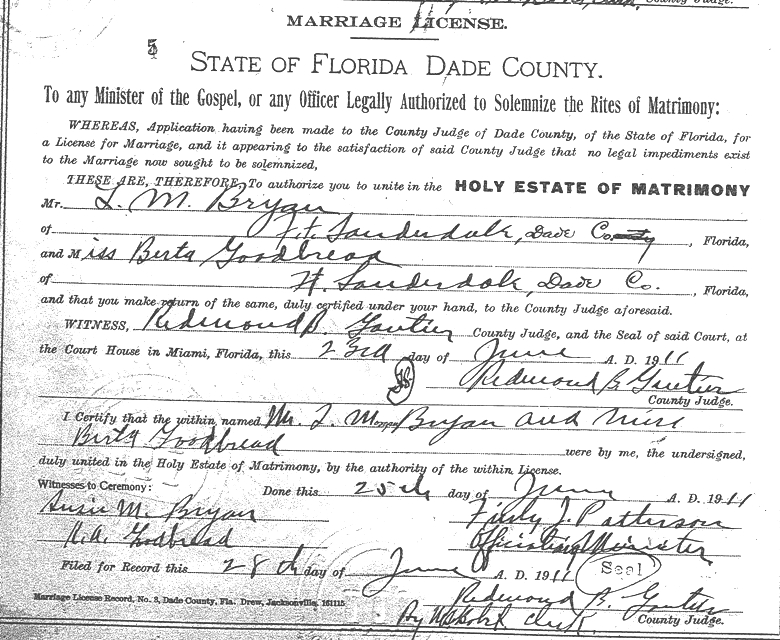 County Judge.
MARRIAGE LICENSE.
STATE OF FLORIDA DADE COUNTY.
To any Minister of the Gospel, or any Officer Legally Authorized to Solemnize the Rites of Matrimony:
WHEREAS, Application having been made to the County Judge of Dade County, of the State of Florida, for
a License for Marriage, and it appearing to the satisfaction of said County Judge that no legal impediments exist
to the Marriage now sought to be solemnized,
THESE ARE, THEREFORE, To authorize you to unite in the HOLY ESTATE OF MATRIMONY
Mr. L. M. Bryan
of Ft. Lauderdale, Dade County, Florida,
and Miss Berta Goodbread
of Ft. Lauderdale, Dade Co., Florida,
and that you make return of the same, duly certified under your hand, to the County Judge aforesaid.
WITNESS, Redmond B. Gautier County Judge, and the Seal of said Court, at
the Court House in Miami, Florida, this 23rd day of June A. D. 1911
Redmond B. Gautier
County Judge.
I Certify that the within named Mr. L. Bryan and Miss
Berta Goodbread were by me, the undersigned,
duly united in the Holy Estate of Matrimony, by the authority of the within License.
Witnesses to Ceremony: Done this 25th day of June A. D. 1911
Susie M. Bryan J. Patterson
Goodbread Officiating Minister
Filed for Record this 28th day of June A. D. 1911 Seal
Redmond B. Gautier
Marriage License Record, No. 3, Dade County, Fla. Drew, Jacksonville. 161115 By Clerk County Judge.